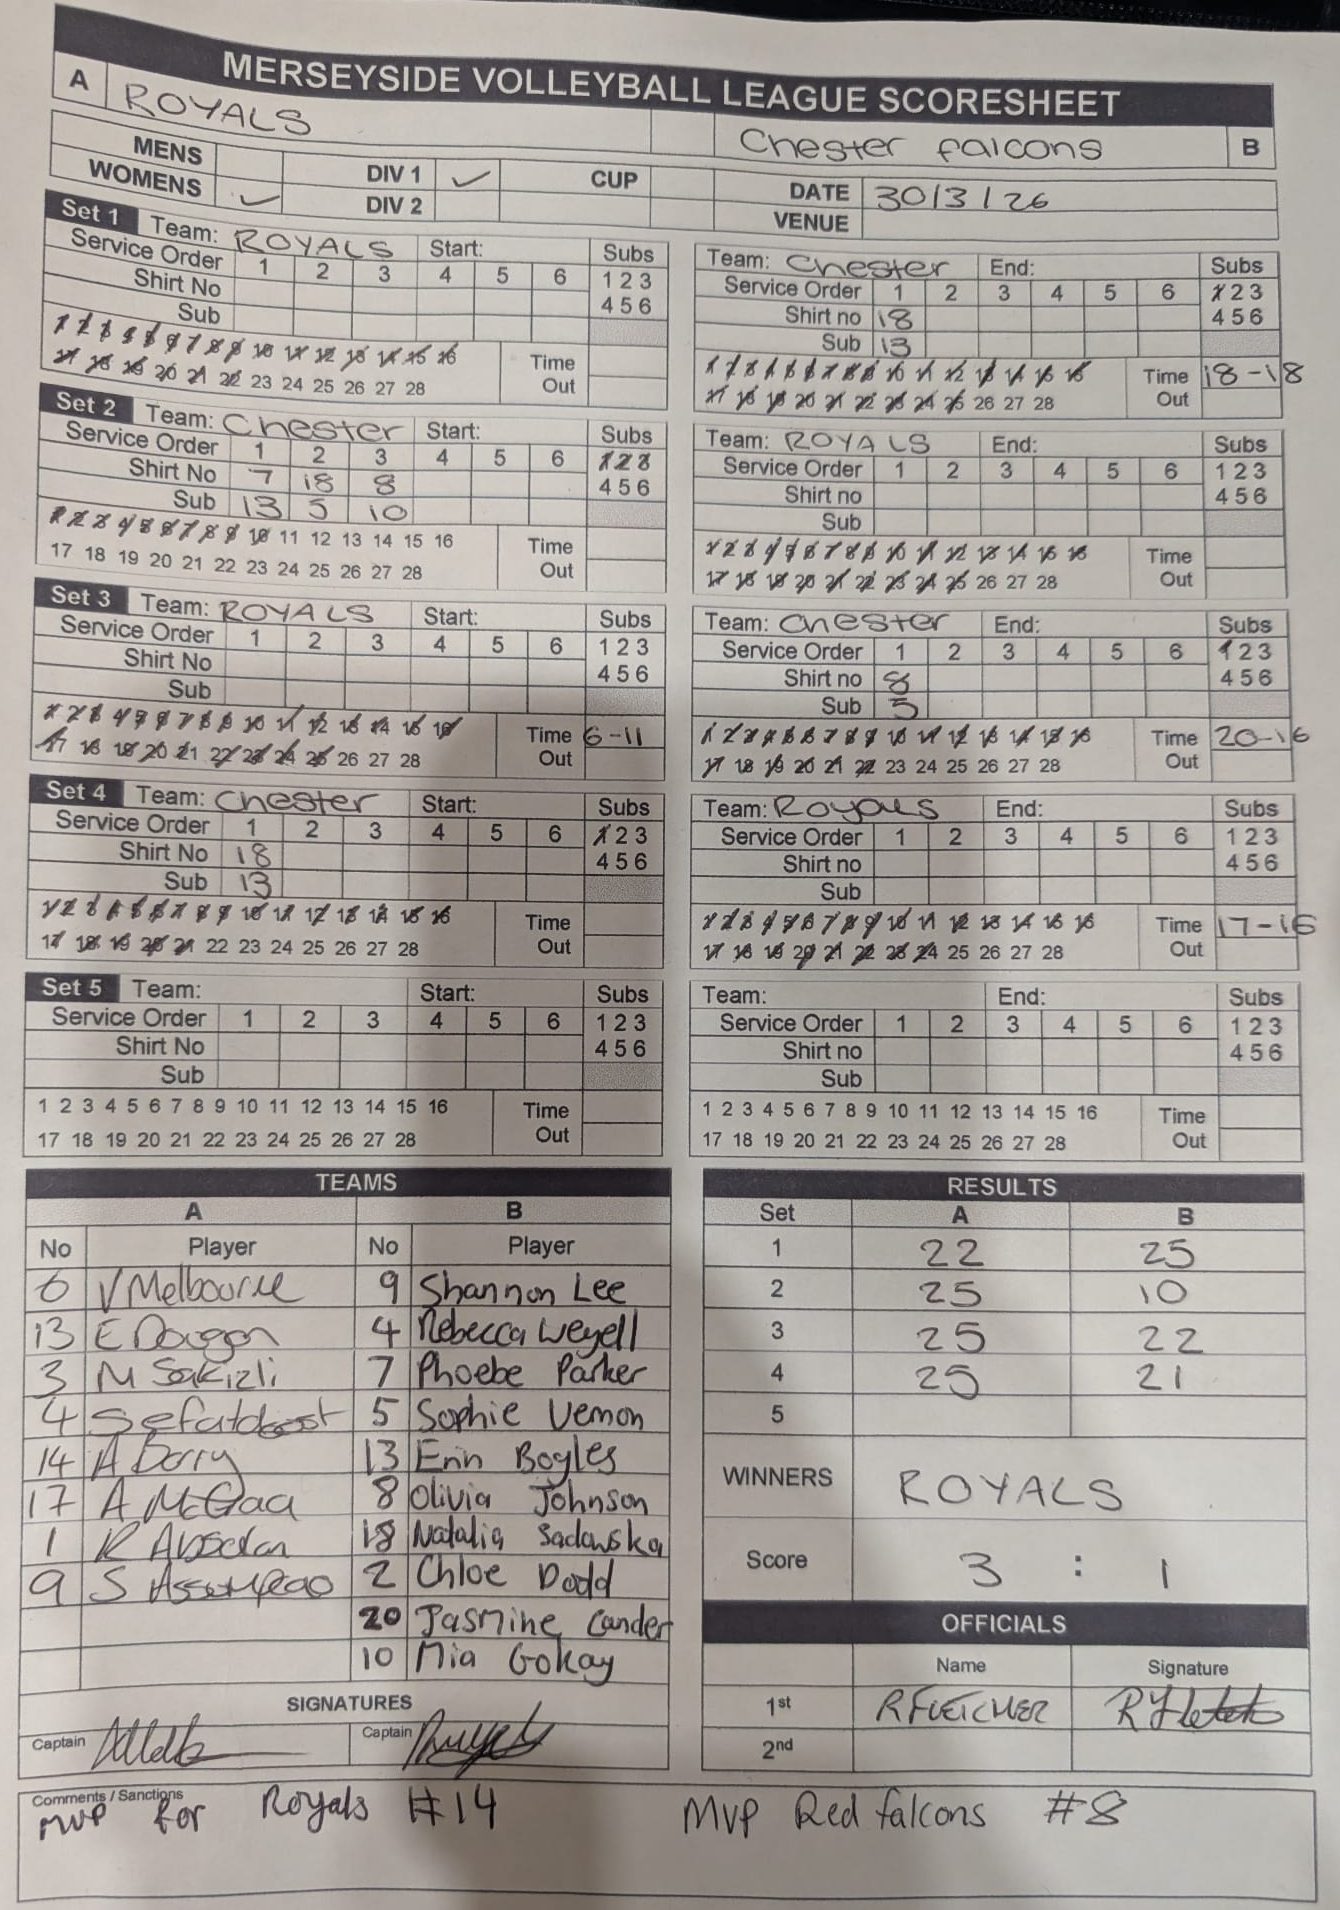 MERSEYSIDE VOLLEYBALL LEAGUE SCORESHEET
A ROYALS Chester falcons B
MENS DIV 1 ✓ CUP DATE 30/3/26
WOMENS ✓ DIV 2 VENUE
Set 1 Team: ROYALS Start: Subs
Service Order 1 2 3 4 5 6 1 2 3
Shirt No 4 5 6
Sub
1 2 3 4 5 6 7 8 9 10 11 12 13 14 15 16 Time
17 18 19 20 21 22 23 24 25 26 27 28 Out
Team: Chester End: Subs
Service Order 1 2 3 4 5 6 1 2 3
Shirt no 18 4 5 6
Sub 13
1 2 3 4 5 6 7 8 9 10 11 12 13 14 15 16 Time 18-18
17 18 19 20 21 22 23 24 25 26 27 28 Out
Set 2 Team: Chester Start: Subs
Service Order 1 2 3 4 5 6 1 2 3
Shirt No 7 18 8 4 5 6
Sub 13 5 10
1 2 3 4 5 6 7 8 9 10 11 12 13 14 15 16 Time
17 18 19 20 21 22 23 24 25 26 27 28 Out
Team: ROYALS End: Subs
Service Order 1 2 3 4 5 6 1 2 3
Shirt no 4 5 6
Sub
1 2 3 4 5 6 7 8 9 10 11 12 13 14 15 16 Time
17 18 19 20 21 22 23 24 25 26 27 28 Out
Set 3 Team: ROYALS Start: Subs
Service Order 1 2 3 4 5 6 1 2 3
Shirt No 4 5 6
Sub
1 2 3 4 5 6 7 8 9 10 11 12 13 14 15 16 Time 6-11
17 18 19 20 21 22 23 24 25 26 27 28 Out
Team: Chester End: Subs
Service Order 1 2 3 4 5 6 1 2 3
Shirt no 8 4 5 6
Sub 5
1 2 3 4 5 6 7 8 9 10 11 12 13 14 15 16 Time 20-16
17 18 19 20 21 22 23 24 25 26 27 28 Out
Set 4 Team: Chester Start: Subs
Service Order 1 2 3 4 5 6 1 2 3
Shirt No 18 4 5 6
Sub 13
1 2 3 4 5 6 7 8 9 10 11 12 13 14 15 16 Time
17 18 19 20 21 22 23 24 25 26 27 28 Out
Team: Royals End: Subs
Service Order 1 2 3 4 5 6 1 2 3
Shirt no 4 5 6
Sub
1 2 3 4 5 6 7 8 9 10 11 12 13 14 15 16 Time 17-16
17 18 19 20 21 22 23 24 25 26 27 28 Out
Set 5 Team: Start: Subs
Service Order 1 2 3 4 5 6 1 2 3
Shirt No 4 5 6
Sub
1 2 3 4 5 6 7 8 9 10 11 12 13 14 15 16 Time
17 18 19 20 21 22 23 24 25 26 27 28 Out
Team: End: Subs
Service Order 1 2 3 4 5 6 1 2 3
Shirt no 4 5 6
Sub
1 2 3 4 5 6 7 8 9 10 11 12 13 14 15 16 Time
17 18 19 20 21 22 23 24 25 26 27 28 Out
TEAMS
A B
No Player No Player
6 V Melbourne 9 Shannon Lee
13 E 4 Rebecca Weyell
3 M Sakizli 7 Phoebe Parker
4 5 Sophie Vernon
14 A 13 Erin Boyles
17 A 8 Olivia Johnson
1 R 18 Natalia Sadowska
9 S 2 Chloe Dodd
20 Jasmine Cander
10 Mia Gokay
SIGNATURES
Captain Captain
RESULTS
Set A B
1 22 25
2 25 10
3 25 22
4 25 21
5
WINNERS ROYALS
Score 3 : 1
OFFICIALS
Name Signature
1st R FLETCHER
2nd
Comments / Sanctions
MVP for Royals #14 MVP Red falcons #8